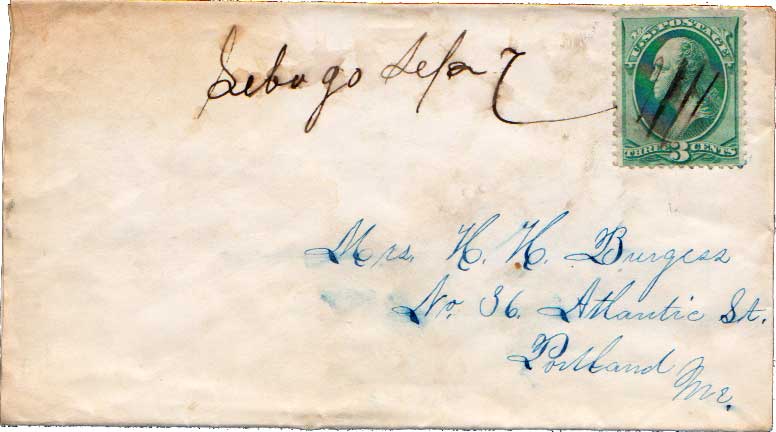 Sebago Sep 7
U.S. POSTAGE
THREE 3 CENTS
Mrs. H. H. Burgess
No. 36. Atlantic St.
Portland
Me.